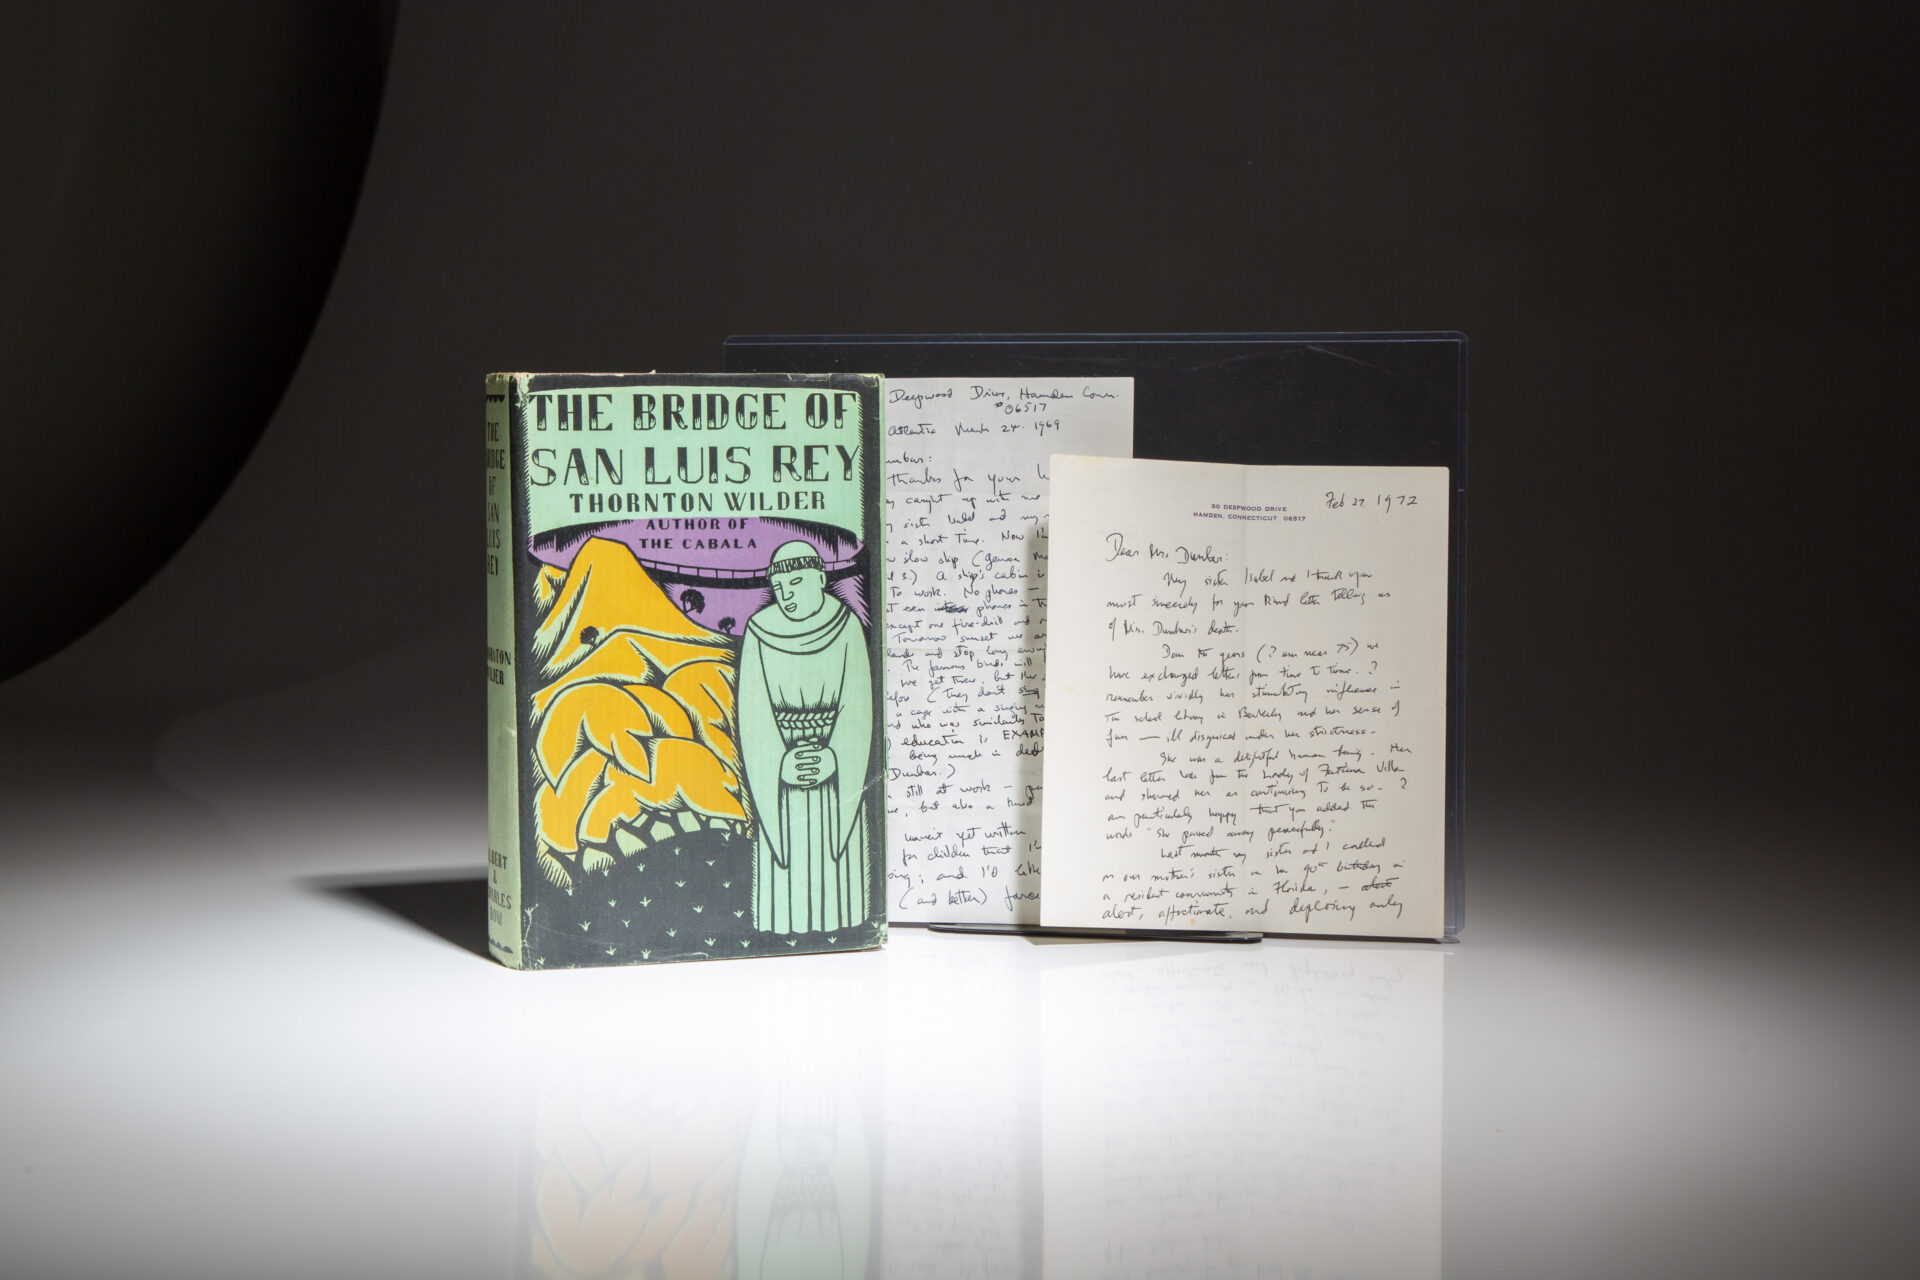 THE BRIDGE OF
SAN LUIS REY
THORNTON WILDER
AUTHOR OF
THE CABALA
THE
BRIDGE
OF
SAN
LUIS
REY
THORNTON
WILDER
ALBERT
&
CHARLES
BONI
Deepwood Drive, Hamden Conn.
#06517
March 24. 1969
thanks for your
caught up with me
sister Isabel and my
a short time. Now I'm
slow ship (Genoa
A ship's cabin is
to work. No phones —
phones in the
except one fire-drill and
Tomorrow sunset we are
and stop long enough
The famous birds will
we get there, but the
(they don't sing
a cage with a singing
who was similarly
education is EXAMP
being much in
Dunbar.)
still at work —
but also a third
haven't yet written
for children that
and I'd like
(and better)
50 DEEPWOOD DRIVE
HAMDEN, CONNECTICUT 06517
Feb 27, 1972
Dear Mrs Dunbar:
My sister Isabel and I thank you
most sincerely for your kind letter telling us
of Miss Dunbar's death.
the years (I am near 75) we
have exchanged letters from time to time. I
remember vividly her stimulating influence in
the school library in Berkeley and her sense of
fun — ill disguised under her strictness.
She was a delightful human being. Her
last letter was from the Villa
and showed her as continuing to be so. I
am particularly happy that you added the
words "She passed away peacefully."
Last month my sister and I called
on our mother's sister on her 90th birthday in
a resident community in Florida, —
alert, affectionate, and deploring only